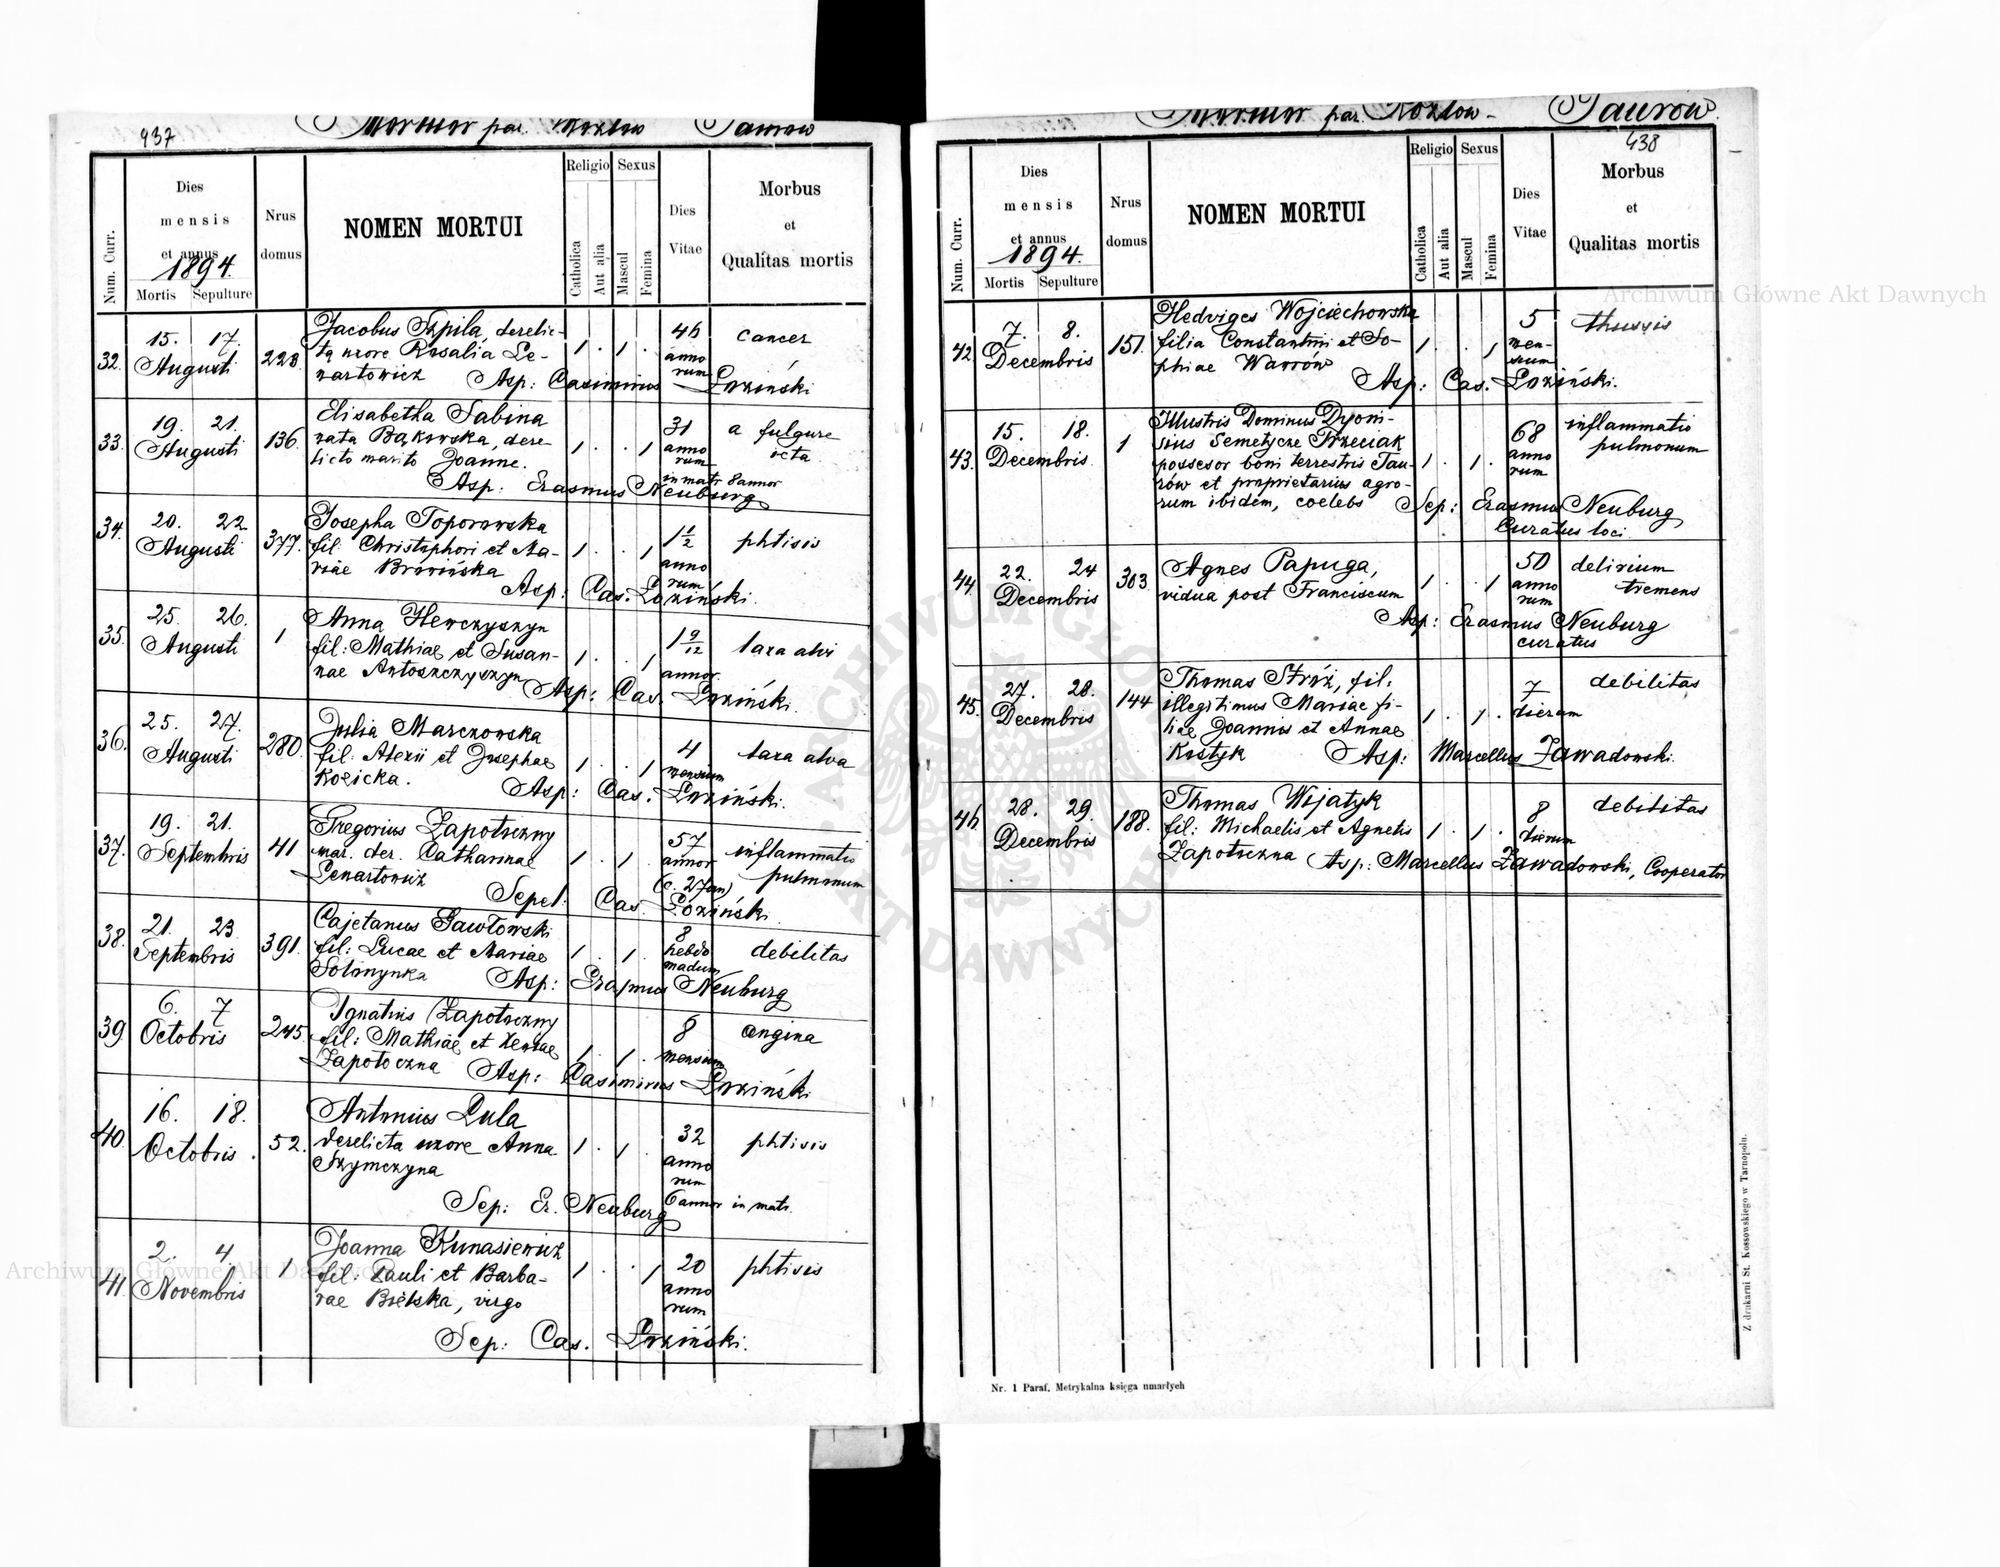 437
Mortuor par. Kozłow Taurow
Num. Curr.
Dies mensis et annus
1894.
Mortis Sepulture
Nrus domus
NOMEN MORTUI
Religio
Catholica
Aut alia
Sexus
Mascul
Femina
Dies Vitae
Morbus et Qualitas mortis
32. 15. 17. Augusti 228. Jacobus Szpila, derelic- 1 . 1 . 46 cancer
ta uxore Rosalia Le- anno
nartowicz rum
Asp: Casimirus Łoziński
33. 19. 21. Augusti 136. Elisabetha Sabina 31 a fulgure
nata Bąkowska, dere- 1 . . 1 anno icta
licto marito Joanne. rum
in matr 8 annor
Asp: Erasmus Neuburg
34. 20. 22 Augusti 377. Josepha Toporowska 1 . . 1 1 1/2 phtisis
fil: Christophori et Ma- anno
riae rum
Asp: Cas. Łoziński.
35. 25. 26. Augusti 1 Anna Hewczyszyn 1 9/12 laxa alvi
fil: Mathiae et Susan- 1 . . 1 annor.
nae Antoszczyszyn
Asp: Cas. Łoziński.
36. 25. 27. Augusti 280. Julia Marczowska 4 laxa alva
fil: Alexii et Josephae 1 . . 1 mensium
Kozicka.
Asp: Cas. Łoziński.
37. 19. 21. Septembris 41 Gregorius Zapotoczny 57 inflammatio
mar. der. Catharinae 1 . 1 . annor pulmonum
Lenartowicz (c. 27 an)
Sepel: Cas Łoziński
38. 21. 23 Septembris 391. Cajetanus Gawłowski 8 debilitas
fil: Lucae et Mariae 1 . 1 . hebdo
Sołomynka madum
Asp: Erasmus Neuburg
39. 6. 7 Octobris 245. Ignatius Zapotoczny 8 angina
fil: Mathiae et Xeniae 1 . 1 . mensium
Zapotoczna
Asp: Casimirus Łoziński
40. 16. 18. Octobris. 52. Antonius Lula 32 phtisis
derelicta uxore Anna 1 . 1 . anno
Szymczyna rum
6 annor in matr.
Sep: Er. Neuburg
41. 2. 4. Novembris 1 Joanna Kunasiewicz 20 phtisis
fil: Pauli et Barba- 1 . . 1 anno
rae Bielska, virgo rum
Sep: Cas. Łoziński.
Mortuor par. Kozłow - Taurow.
438
Num. Curr.
Dies mensis et annus
1894.
Mortis Sepulture
Nrus domus
NOMEN MORTUI
Religio
Catholica
Aut alia
Sexus
Mascul
Femina
Dies Vitae
Morbus et Qualitas mortis
42. 7. 8. Decembris 151. Hedviges Wojciechowska 5 thussis
filia Constantini et So- 1 . . 1 men-
phiae Warrów sium
Asp: Cas. Łoziński.
43. 15. 18. Decembris. 1 Illustris Dominus Dyoni- 68 inflammatio
sius Semetycze Trzeciak anno pulmonum
possesor boni terrestris Tau- 1 . 1 . rum
rów et proprietarius agro-
rum ibidem, coelebs Sep: Erasmus Neuburg
Curatus loci
44. 22. 24 Decembris 303. Agnes Papuga, 50 delirium
vidua post Franciscum 1 . . 1 anno tremens
rum
Asp: Erasmus Neuburg
curatus
45. 27. 28. Decembris 144 Thomas Stróż, fil: 7 debilitas
illegitimus Mariae fi- 1 . 1 . dierum
liae Joannis et Annae
Kostyk Asp: Marcellus Zawadowski.
46. 28. 29. Decembris 188. Thomas Wijatyk 8 debilitas
fil: Michaelis et Agnetis 1 . 1 . dierum
Zapotoczna Asp: Marcellus Zawadowski, Cooperator
Nr. 1 Paraf. Metrykalna księga umarłych
Z drukarni St. Kossowskiego w Tarnopolu.
Archiwum Główne Akt Dawnych
Archiwum Główne Akt Dawnych
ARCHIWUM GŁÓWNE AKT DAWNYCH